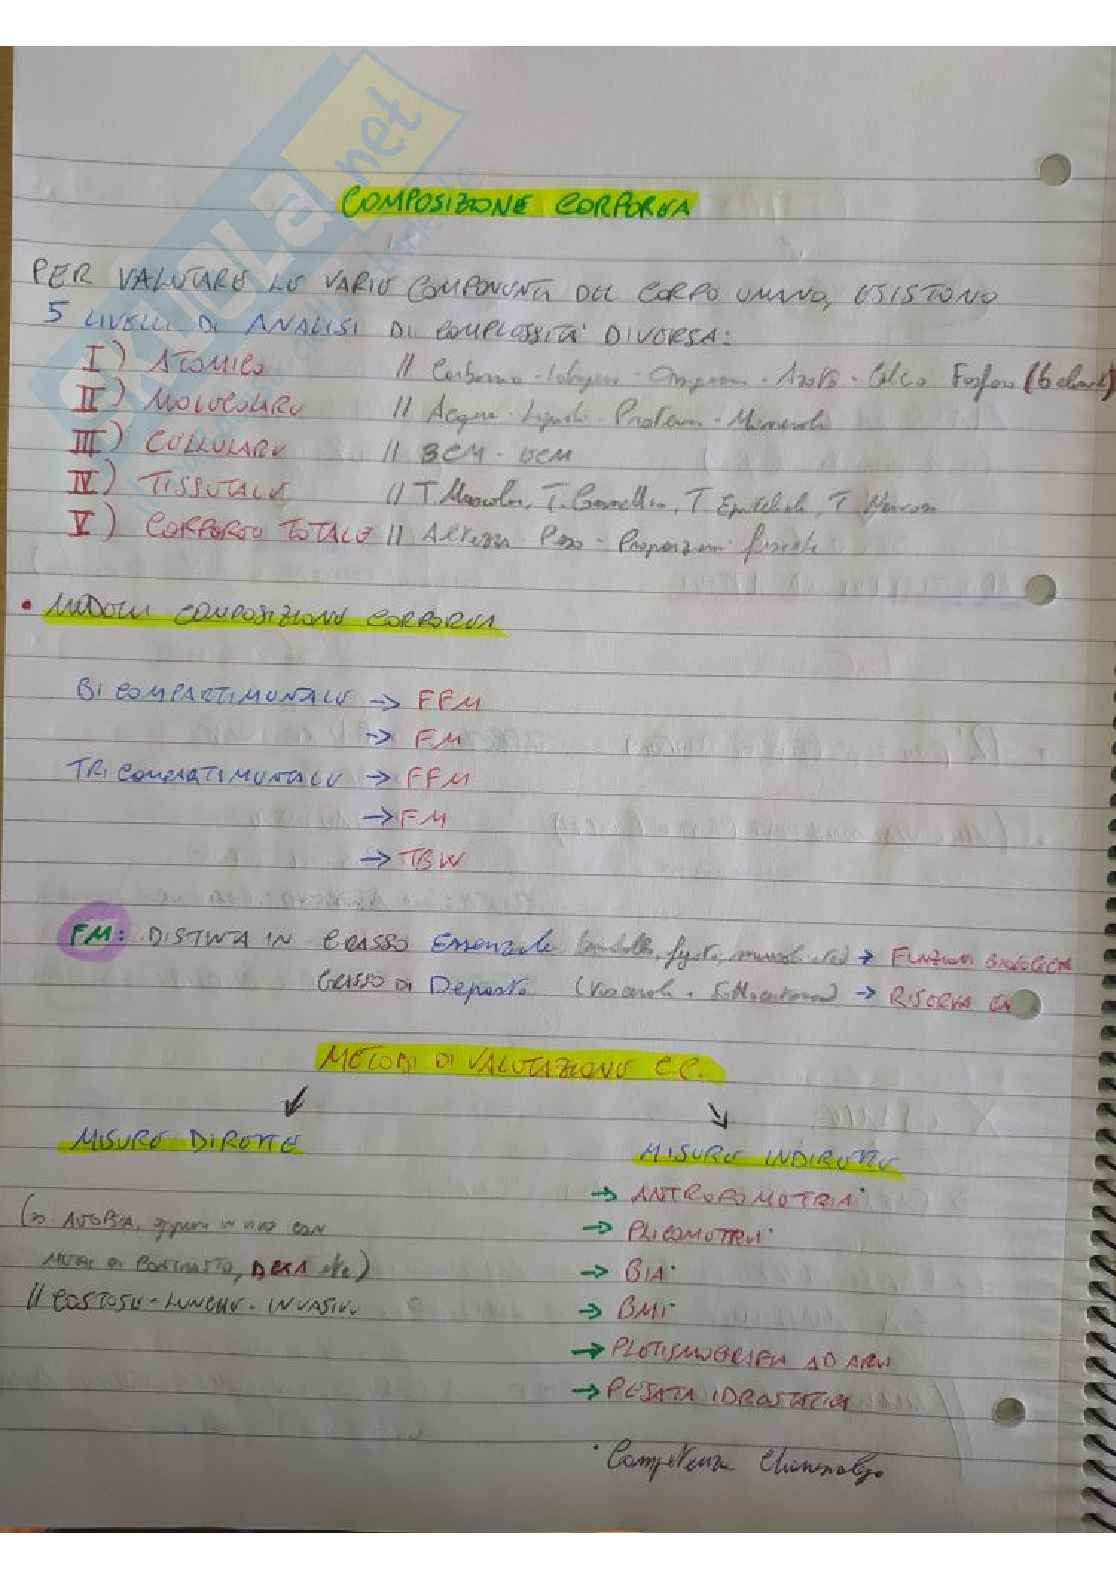 SKUOLA.net
COMPOSIZIONE CORPOREA
PER VALUTARE LE VARIE COMPONENTI DEL CORPO UMANO, ESISTONO
5 LIVELLI DI ANALISI DI COMPLESSITA' DIVERSA:
I) ATOMICO // Carbonio - Idrogeno - Ossigeno - Azoto - Calcio Fosforo (6
II) MOLECOLARE // Acqua - Lipidi - Proteine - Minerali
III) CELLULARE // BCM - ECM
IV) TISSUTALE // T. Muscolare, T. Connettivo, T. Epiteliale, T. Nervoso
V) CORPOREO TOTALE // Altezza - Peso - Proporzioni fisiche
• MODELLI COMPOSIZIONE CORPOREA
BICOMPARTIMENTALE → FFM
→ FM
TRICOMPARTIMENTALE → FFM
→ FM
→ TBW
FM: DISTINTA IN GRASSO Essenziale (midollo, fegato, muscoli etc) → FUNZIONI BIOLOGICHE
GRASSO DI Deposito (Viscerale - Sottocutaneo) → RISERVA
METODI DI VALUTAZIONE C.C.
MISURE DIRETTE
MISURE INDIRETTE
(es AUTOPSIA, oppure in vivo con
MEZZI DI CONTRASTO, DEXA etc)
// COSTOSE - LUNGHE - INVASIVE
→ ANTROPOMETRIA•
→ PLICOMETRIA•
→ BIA•
→ BMI•
→ PLETISMOGRAFIA AD ARIA
→ PESATA IDROSTATICA
• Competenza Chinesiologo